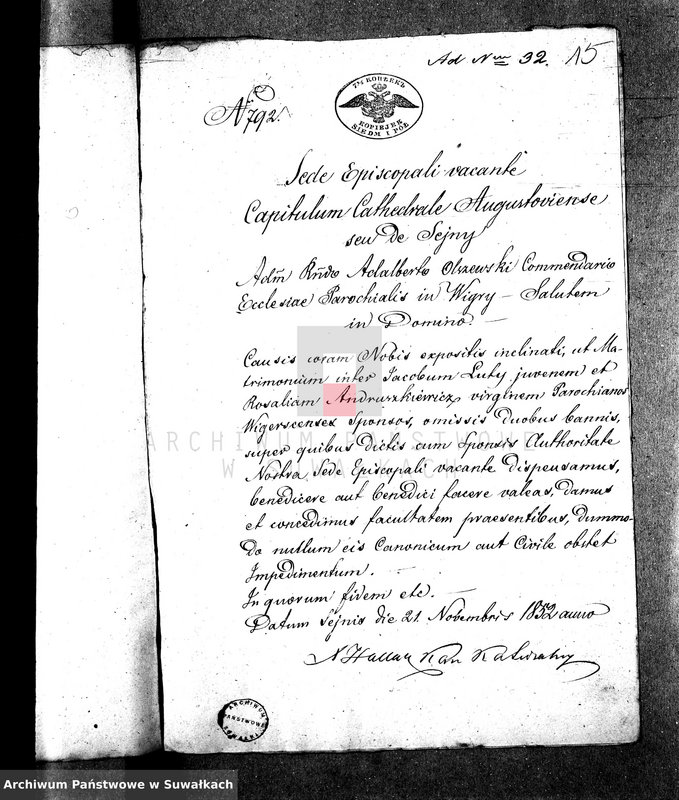 Ad Nrum 32. 15
7½ КОПѢЕКЪ
KOPIEJEK
SIEDM I PÓŁ
N 792.
Sede Episcopali vacante
Capitulum Cathedrale Augustoviense
seu de Sejny
Adm̃ Rñdo Adalberto Olszewski Commendario
Ecclesiae Parochialis in Wigry — Salutem
in Domino. —
Causis coram Nobis expositis inclinati, ut Ma-
trimonium inter Jacobum Luty juvenem et
Rosaliam Andruszkiewicz virginem Parochianos
Wigerscenses Sponsos, omissis duobus bannis,
super quibus dictis cum Sponsis Authoritate
Nostra Sede Episcopali vacante dispensamus,
benedicere aut benedici facere valeas, damus
et concedimus facultatem praesentibus, dummo-
do nullum eis Canonicum aut Civile obstet
Impedimentum. —
In quorum fidem etc. —
Datum Sejnis die 21. Novembris 1852 anno
Kan Katedralny
ARCHIWUM PAŃSTWOWE
W SUWAŁKACH
ARCHIWUM
PAŃSTWOWE
SUWAŁKI
Archiwum Państwowe w Suwałkach